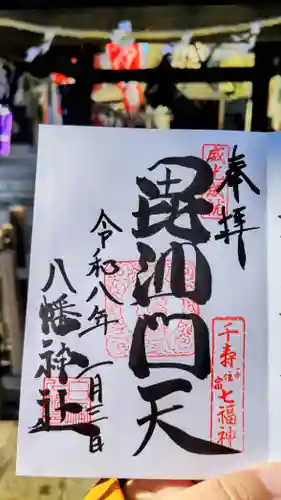 奉拝
毘沙門天
千寿
七福神
令和八年一月三日
八幡神社